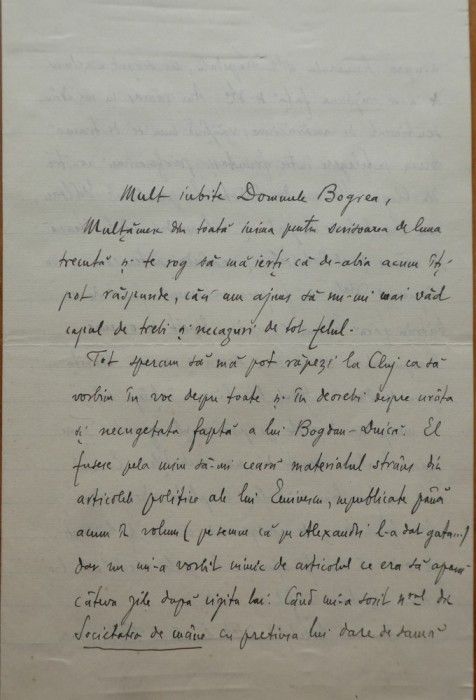 Mult iubite Domnule Bogrea,
Mulțămesc din toată inima pentru scrisoarea de luna
trecută și te rog să mă ierți că de-abia acum îți
pot răspunde, căci am ajuns să nu-mi mai văd
capul de trebi și necazuri de tot felul.
Tot speram să mă pot răpezi la Cluj ca să
vorbim în voe despre toate și în deosebi despre urâta
și necugetata faptă a lui Bogdan-Duică. El
fusese pela mine să-mi ceară materialul strâns din
articolele politice ale lui Eminescu, nepublicate până
acum în volum (pe semne că pe Alexandri l-a dat gata...)
dar nu mi-a vorbit nimic de articolul ce era să apară
câteva zile după vizita lui. Când mi-a sosit nrul din
Societatea de mâine cu pretinsa lui dare de samă